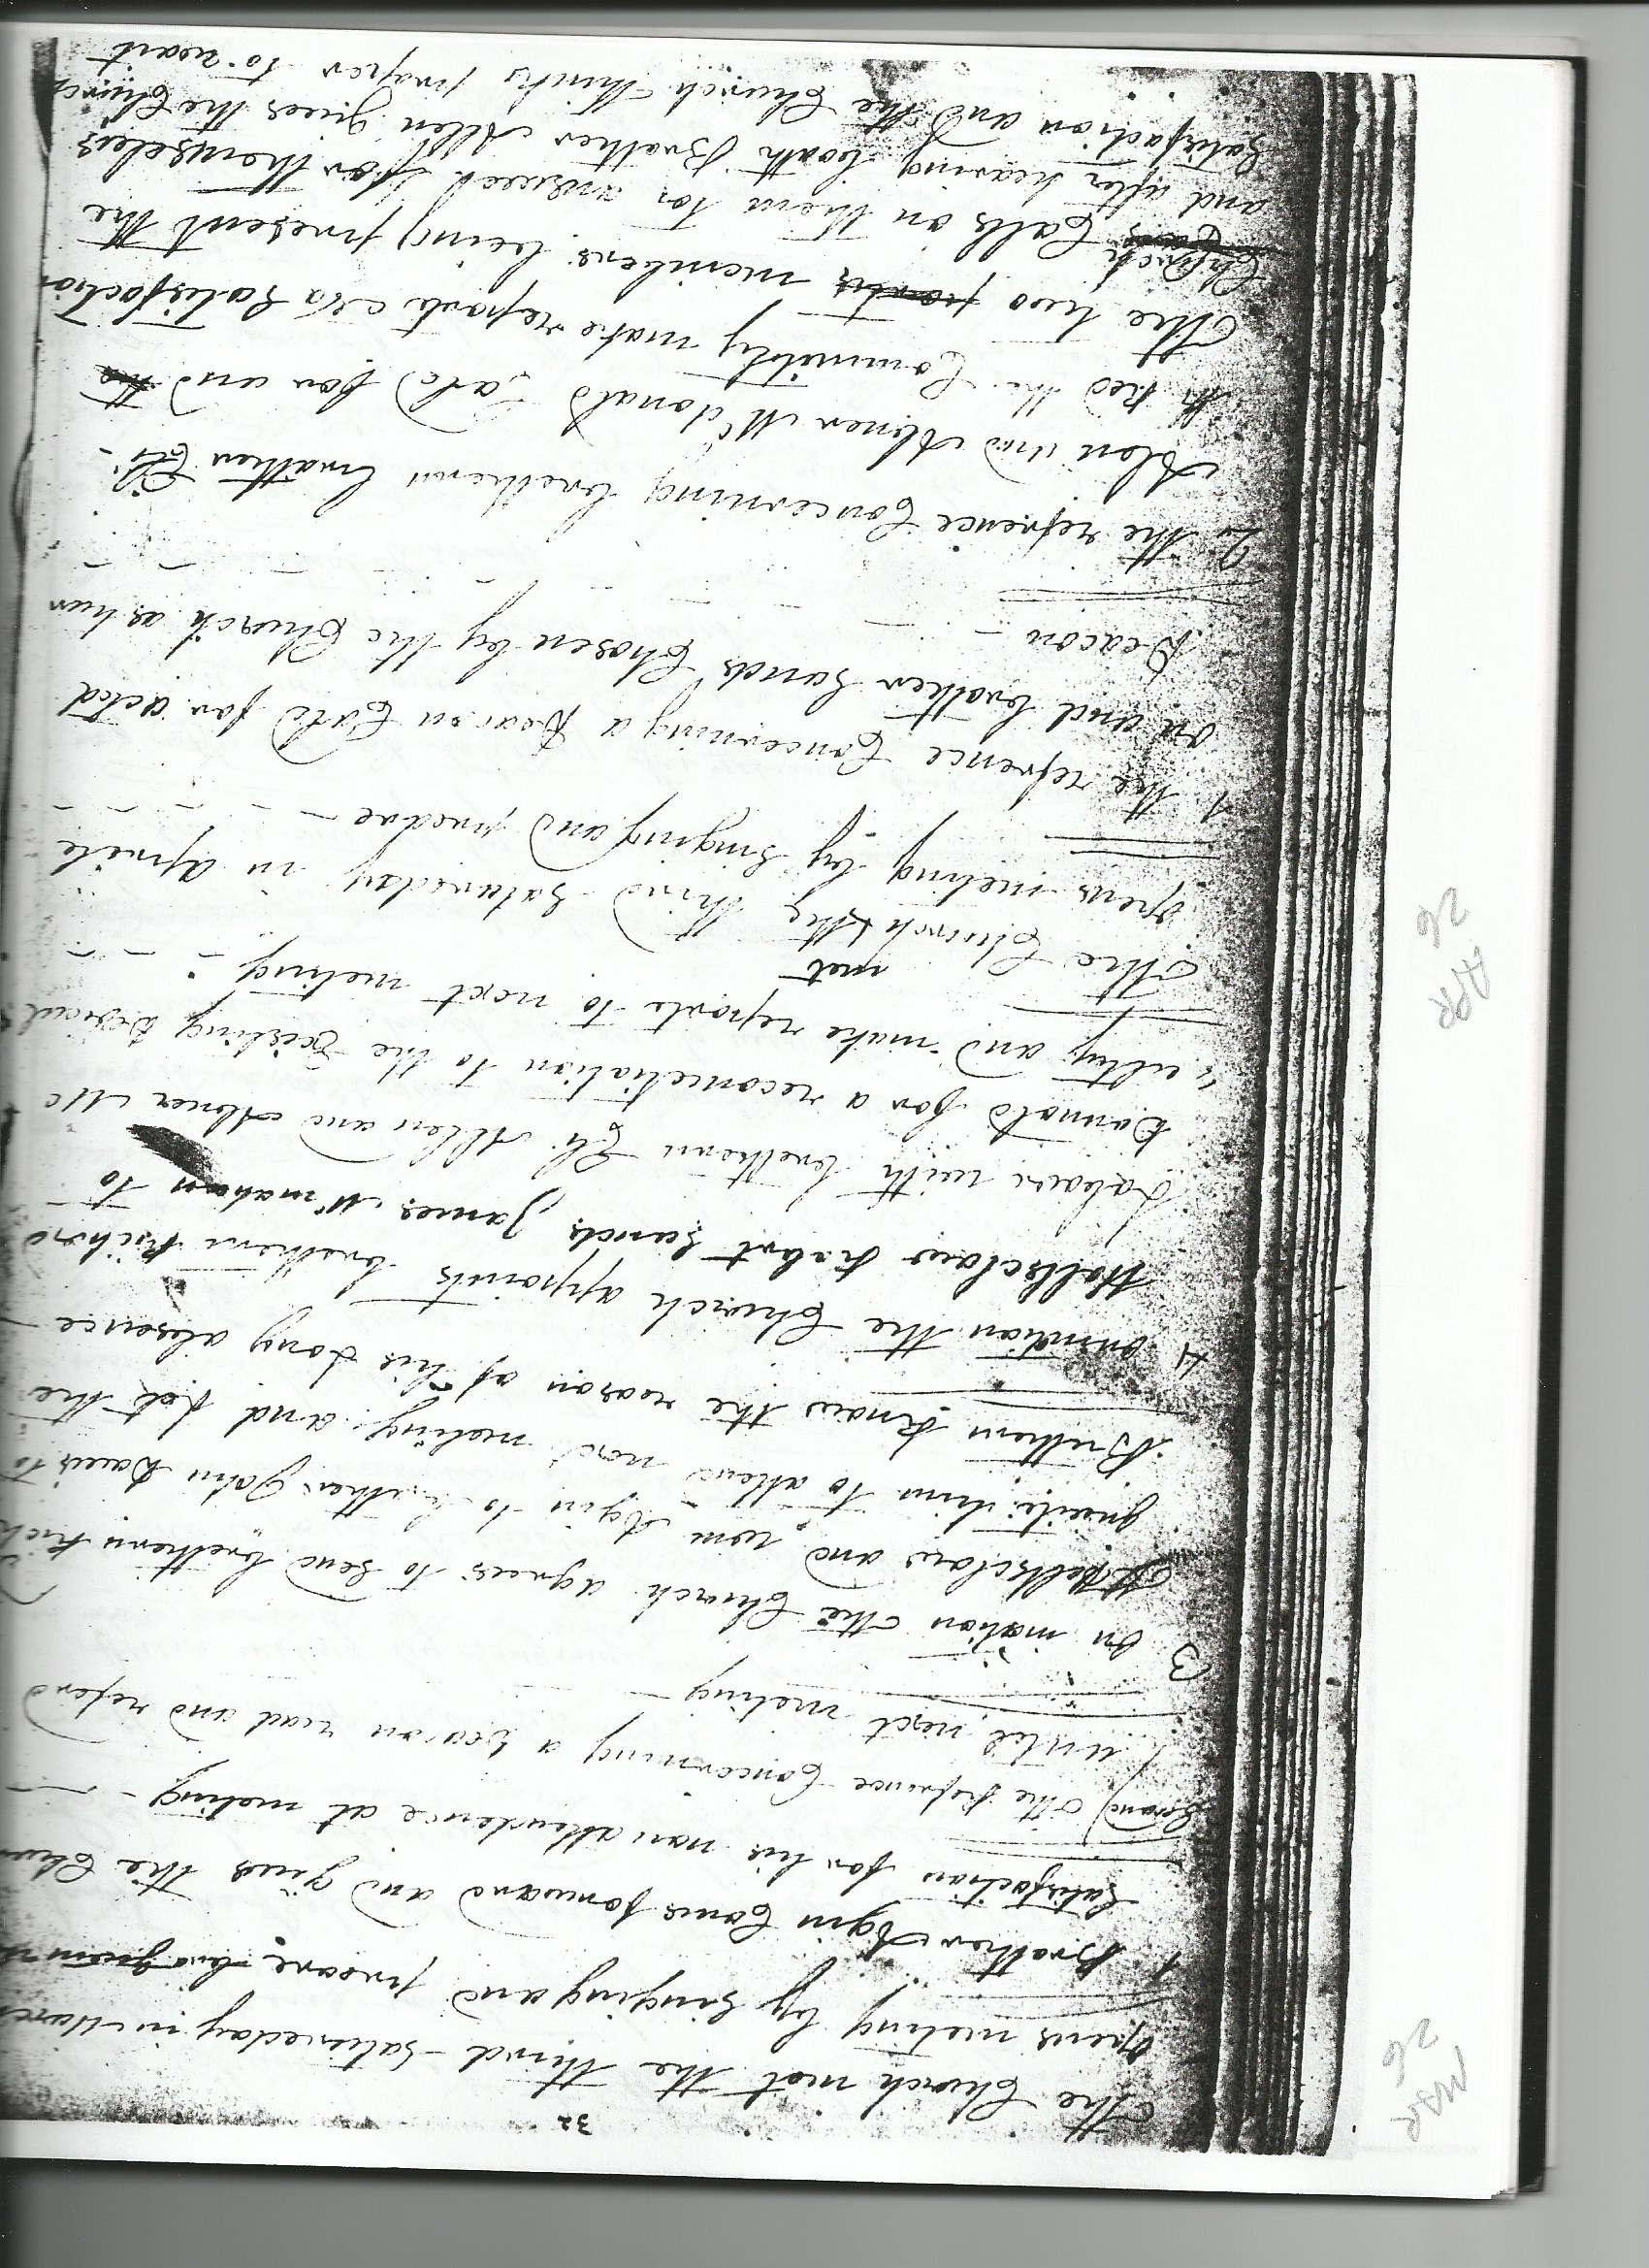 32
MAR
26
The Church met the third Satureday in March
opens meting by Singing and preare
1 Brother Agin Come forward and gives the Chur
Satisfaction for his non attendence at meting
Second The Refrence Concerning a Deacon read and refered
until next meting
3 On motion the Church agrees to Send brethern Rich
Hollsclaw and Wm Agin to brother John Davis to
him to attend next meting and Let the
Brethern Know the reason of his Long absence
4 on motion the Church appoints brethern Richard
Hollsclaw Robert Sands James Mcmahan to
Labour with brethern Eli Allen and Abner Mc
Donnald for a reconcliation to the Exiting
and make reporte to next meting
APR
26
The Church met the third Satureday in Aprile
opens meting by Singing and predue
1 the refrence Concerning a Deacon Cald for acted
on and brother Sands Chosen by the Church as her
Deacon
2 the refrence Concerning brethern brother Eli
Alen and Abner Mcdonald Cald for and the
the Committy make reporte
The two party members being present the
Church Calls on them for themselves
and after hearing boath Brother Allen gives the Church
Satisfaction and the Church thinks proper to wait